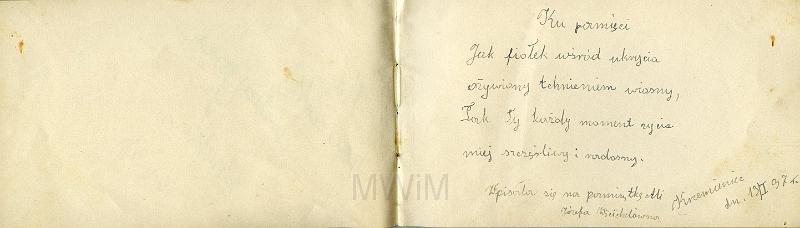 Ku pamięci
Jak fiołek wśród ukrycia
ożywiony tchnieniem wiosny,
Tak Ty każdy moment życia
miej szczęśliwy i radosny.
Wpisała się na pamiątkę Ali
Józefa
Krzemieniec
dn. 37 r.
MWiM